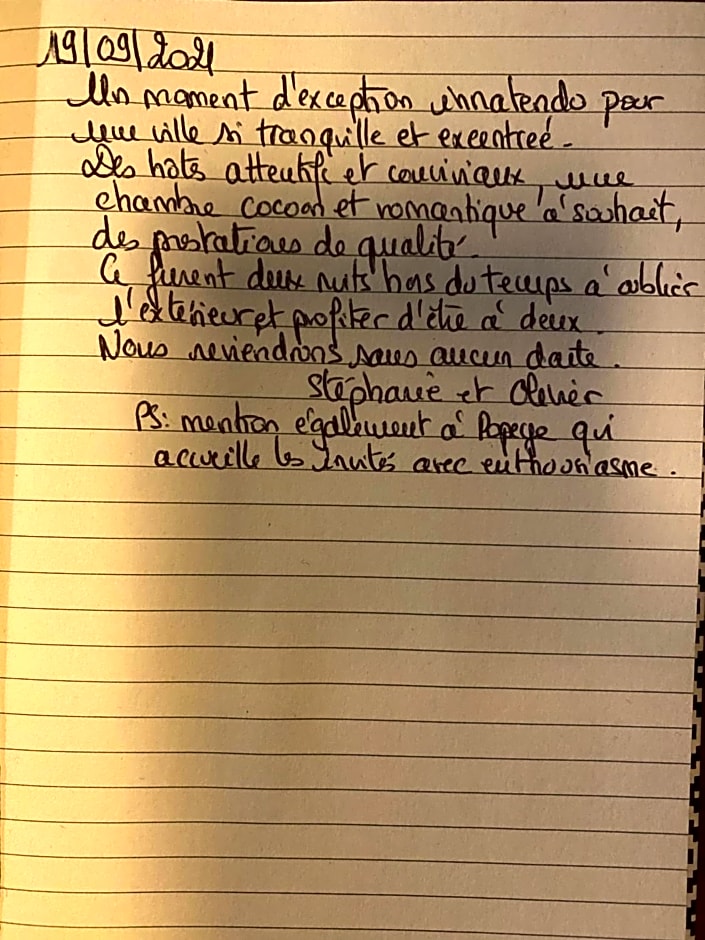 19/09/2021
Un moment d'exception innatendo pour
une ville si tranquille et excentreé.
Des hots attentifs et conviviaux, une
chambre cocoon et romantique à souhait,
des prestations de qualité.
Ce furent deux nuits hors du temps à oublier
l'extérieur et profiter d'être à deux.
Nous reviendrons sans aucun doute.
Stéphanie et Olivier
PS: mention également à Popeye qui
accueille les invités avec enthousiasme.